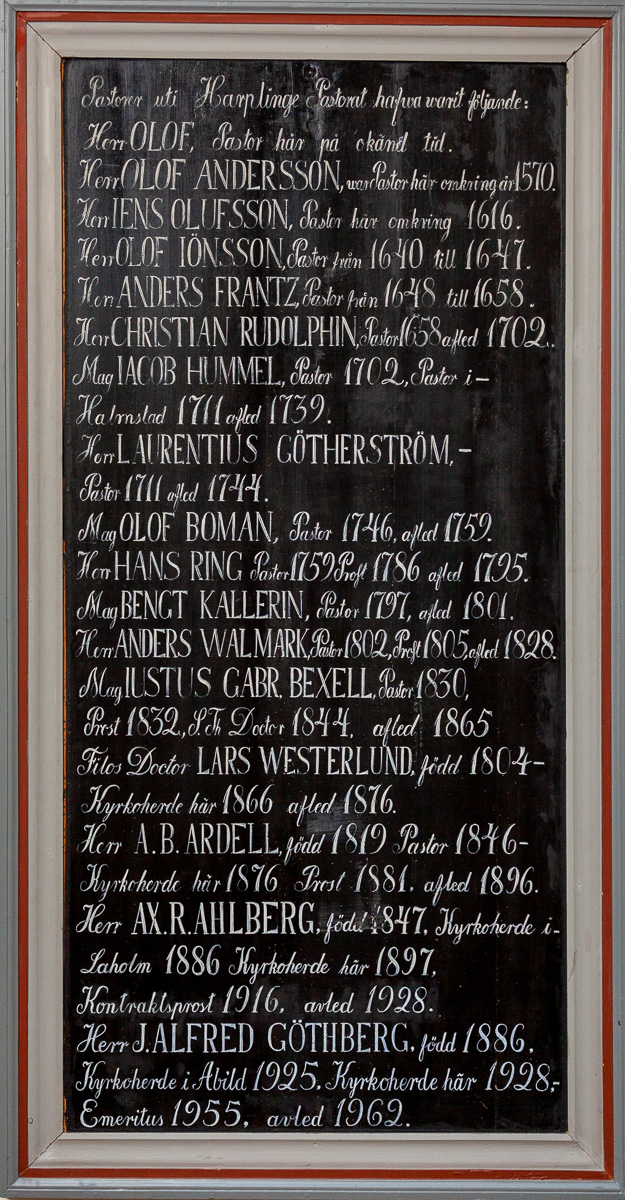 Pastorer uti Harplinge Pastorat hafwa warit följande:
Herr OLOF, Pastor här på okänd tid.
Herr OLOF ANDERSSON, war Pastor här omkring år 1570.
Herr IENS OLUFSSON, Pastor här omkring 1616.
Herr OLOF IÖNSSON, Pastor från 1640 till 1647.
Herr ANDERS FRANTZ, Pastor från 1648 till 1658.
Herr CHRISTIAN RUDOLPHIN, Pastor 1658 afled 1702.
Mag IACOB HUMMEL, Pastor 1702, Pastor i-
Halmstad 1711 afled 1739.
Herr LAURENTIUS GÖTHERSTRÖM,-
Pastor 1711 afled 1744.
Mag OLOF BOMAN, Pastor 1746, afled 1759.
Herr HANS RING Pastor 1759 Prost 1786 afled 1795.
Mag BENGT KALLERIN, Pastor 1797, afled 1801.
Herr ANDERS WALMARK, Pastor 1802, Prost 1805, afled 1828.
Mag IUSTUS GABR. BEXELL, Pastor 1830,
Prost 1832, S.Th Doctor 1844, afled 1865
Filos Doctor LARS WESTERLUND, född 1804-
Kyrkoherde här 1866 afled 1876.
Herr A.B. ARDELL, född 1819 Pastor 1846-
Kyrkoherde här 1876 Prost 1881. afled 1896.
Herr AX.R. AHLBERG, född 1847, Kyrkoherde i-
Laholm 1886 Kyrkoherde här 1897,
Kontraktsprost 1916, avled 1928.
Herr J. ALFRED GÖTHBERG, född 1886,
Kyrkoherde i Abild 1925. Kyrkoherde här 1928,-
Emeritus 1955, avled 1962.